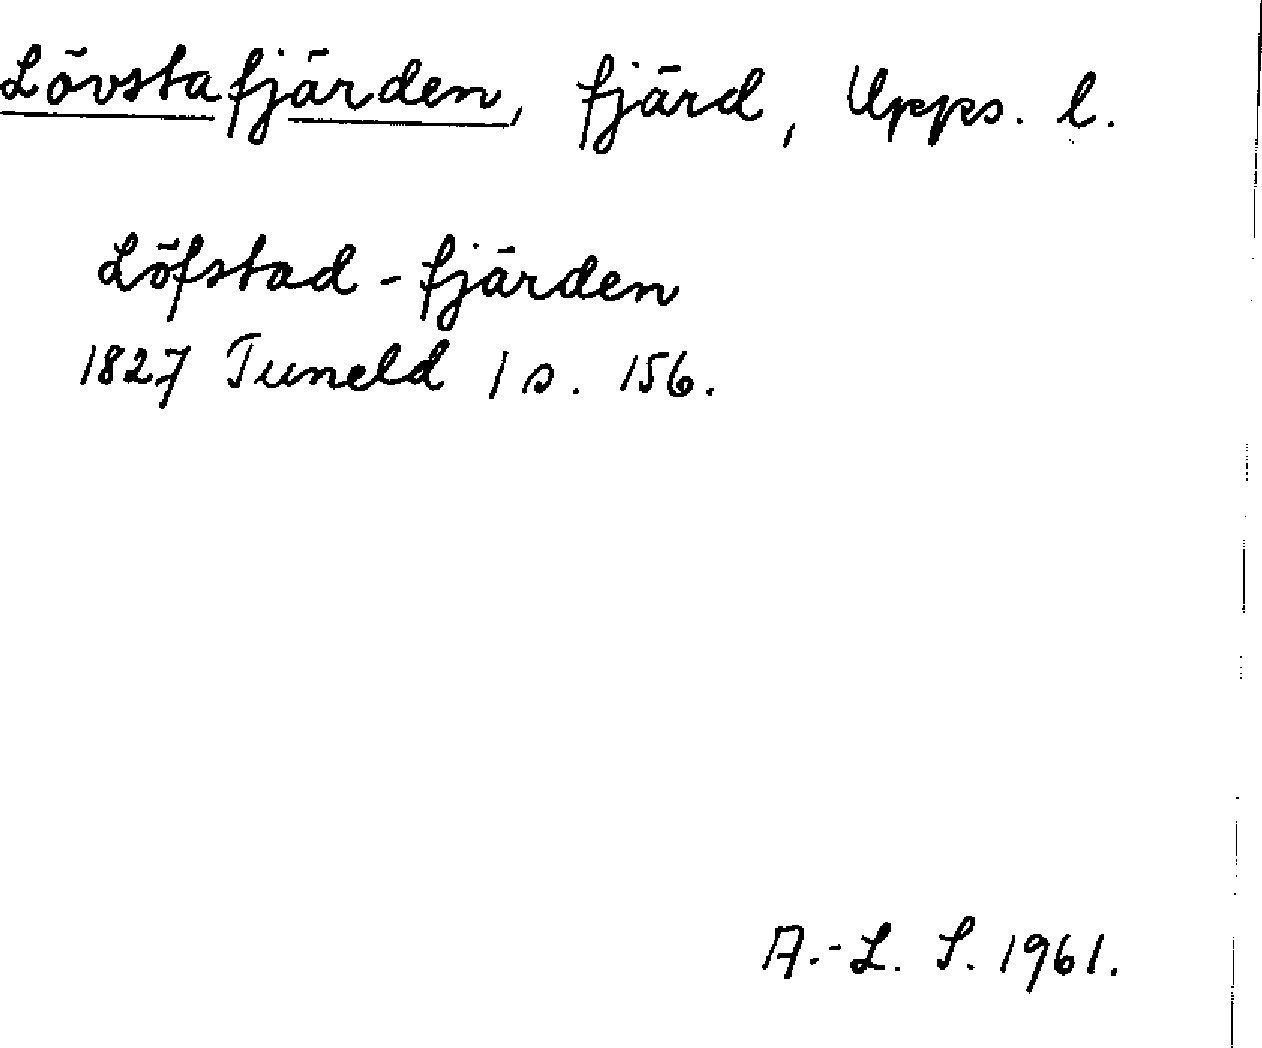 Lövstafjärden, fjärd, Upps. l.
Löfstad-fjärden
1827 Tuneld 1 s. 156.
A.-L. S. 1961.